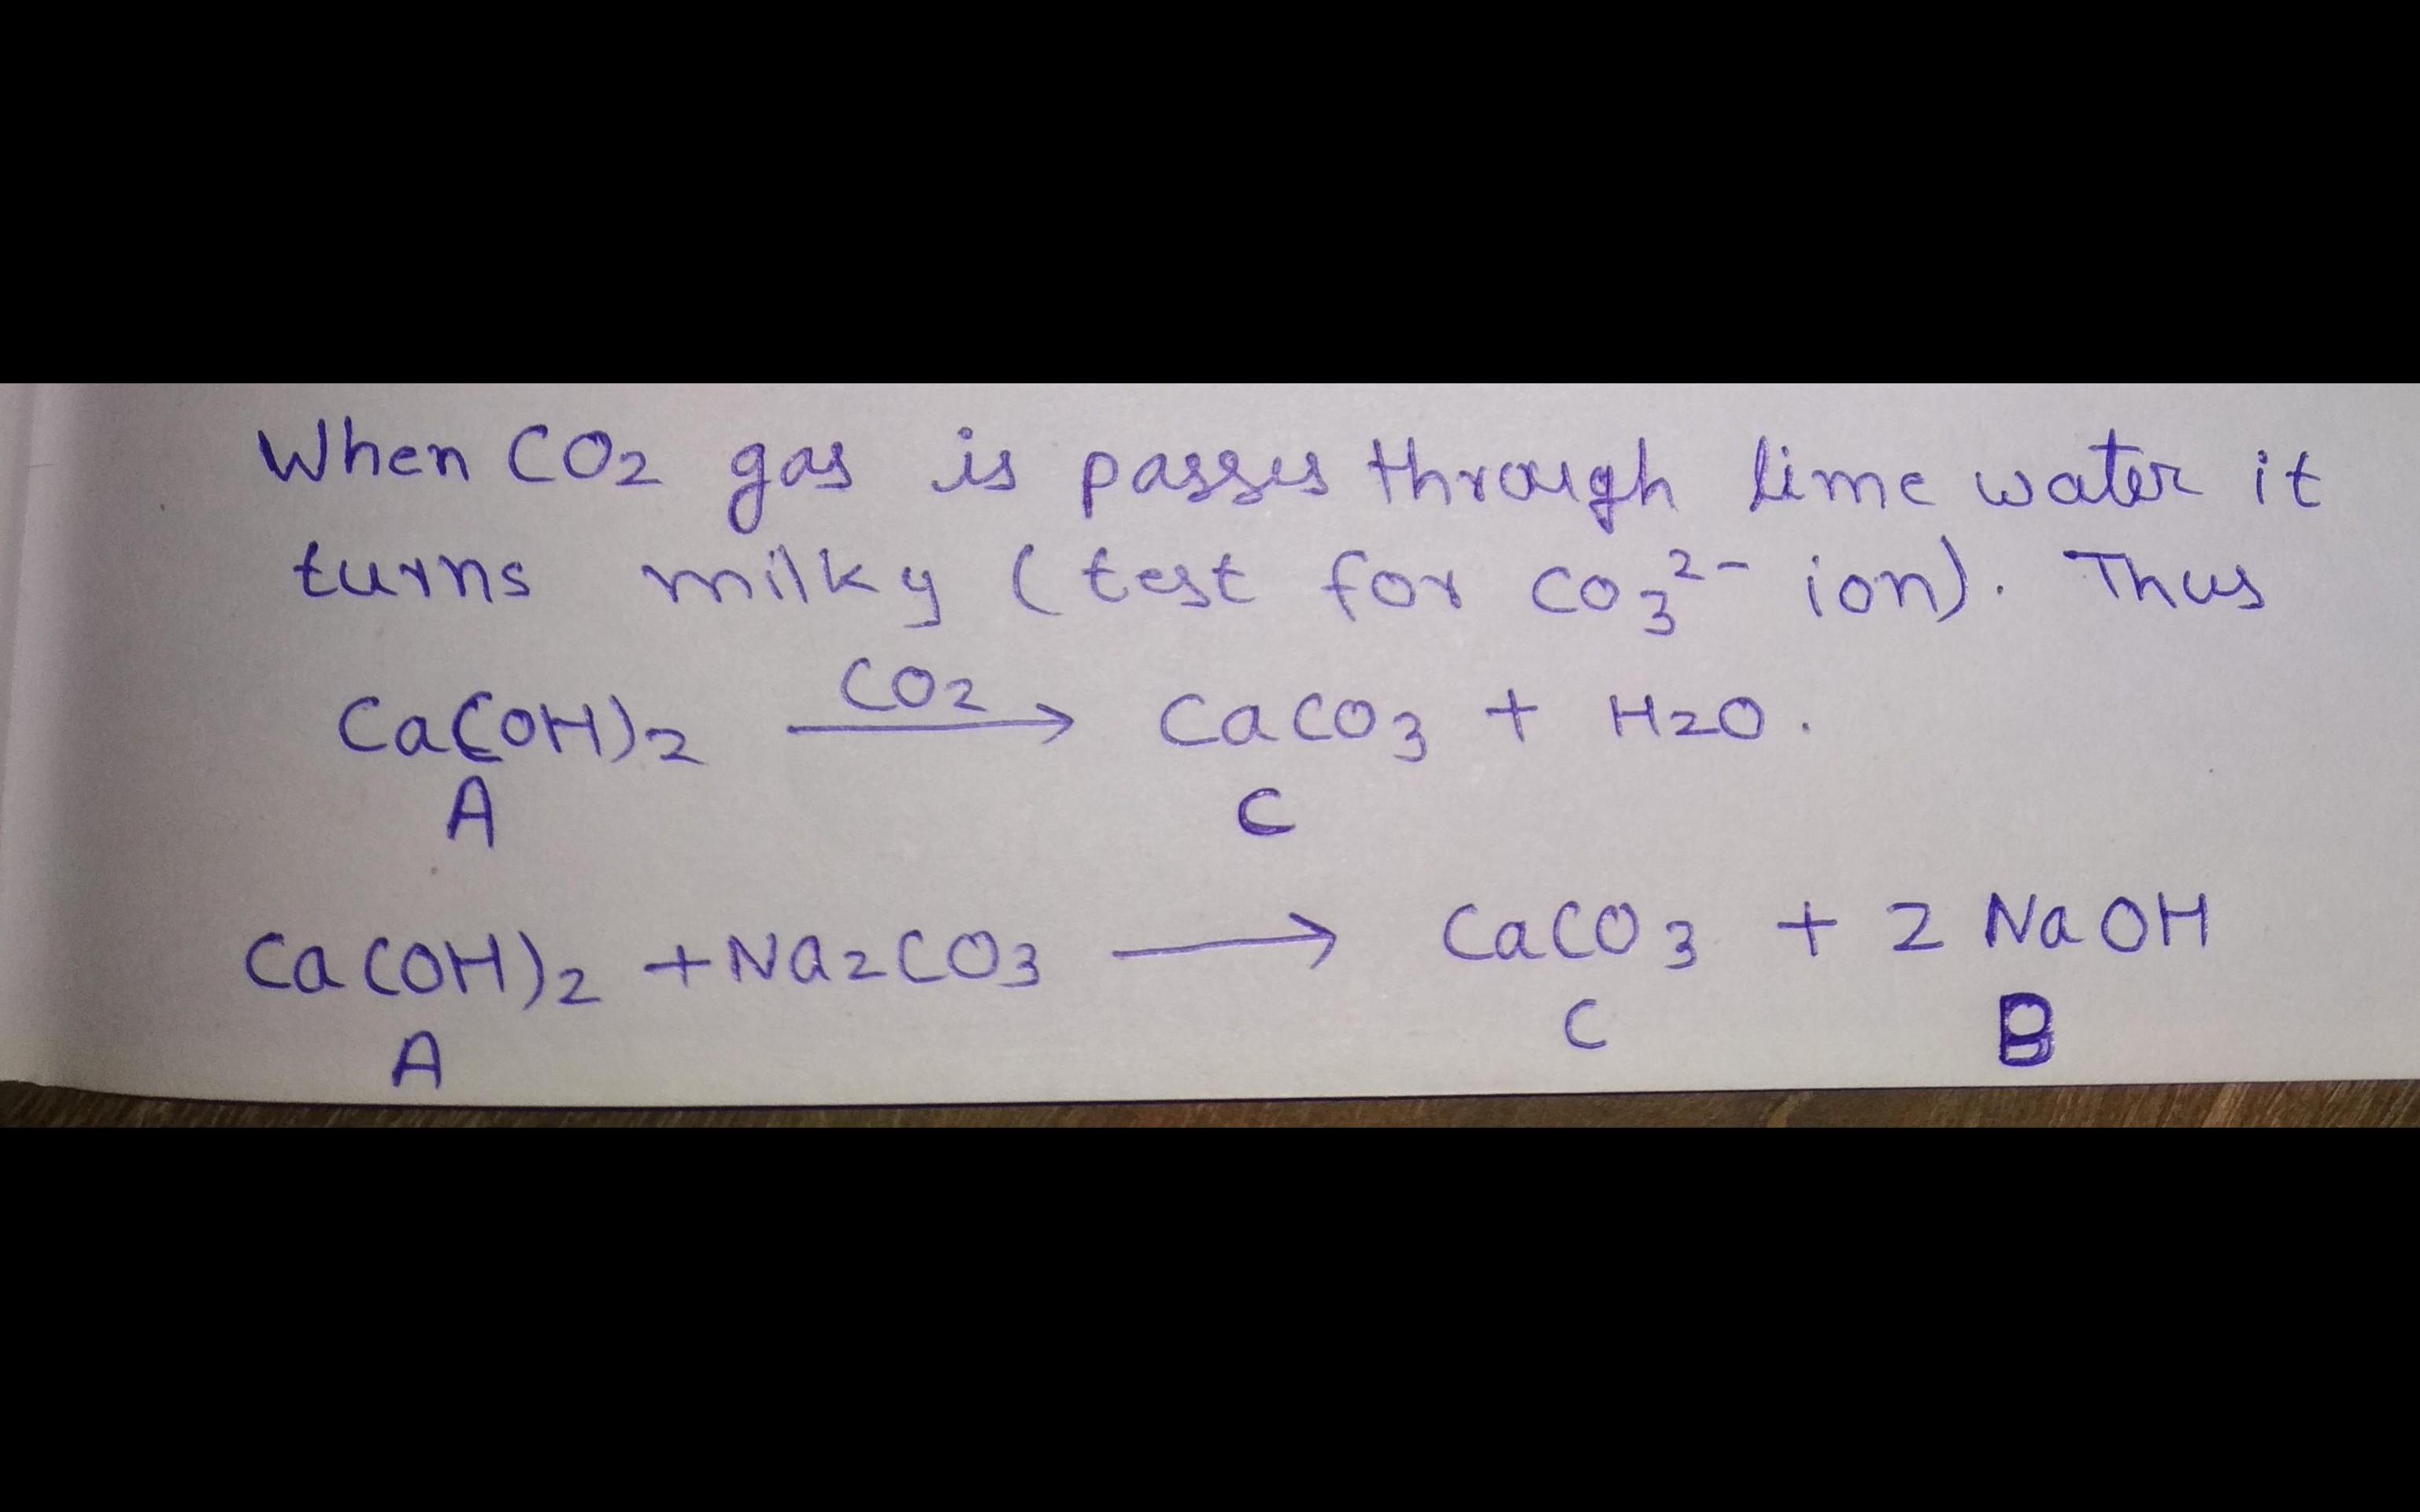 When CO2 gas is passes through lime water it
turns milky (test for CO3^2- ion). Thus
Ca(OH)2 —CO2→ CaCO3 + H2O.
A C
Ca(OH)2 + Na2CO3 → CaCO3 + 2 NaOH
A C B